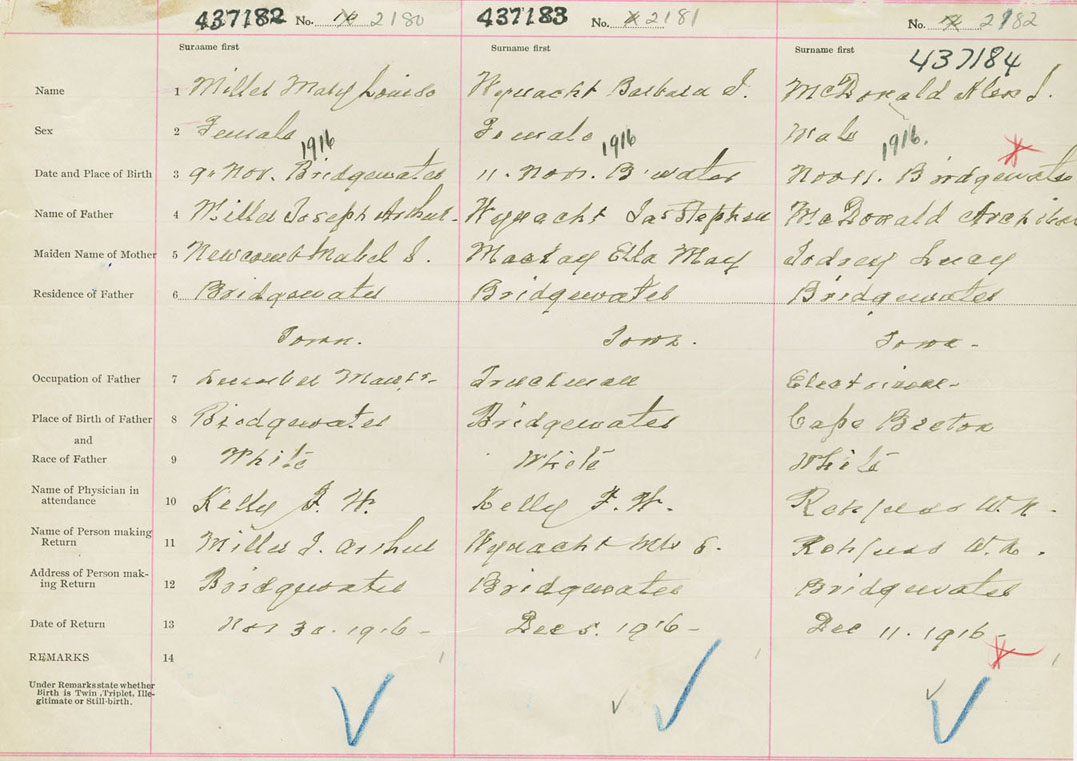 437182 No. 2180 437183 No. 2181 No. 2182
Surname first Surname first Surname first 437184
Name 1 Miller Mary Louise Wynacht Barbara J. McDonald Alex J.
Sex 2 Female Female Male
1916 1916 1916.
Date and Place of Birth 3 9. Nov. Bridgewater 11. Nov. B'water Nov 11. Bridgewater
Name of Father 4 Miller Joseph Arthur Wynacht Jas Stephen McDonald
Maiden Name of Mother 5 Newcomb Mabel S. Mackay Ella May Lucy
Residence of Father 6 Bridgewater Bridgewater Bridgewater
Town. Town. Town -
Occupation of Father 7 Truckman Electrician -
Place of Birth of Father 8 Bridgewater Bridgewater Cape Breton
and
Race of Father 9 White White White
Name of Physician in
attendance 10 Kelly F. W. Kelly F. W. W. N.
Name of Person making
Return 11 Miller J. Arthur Wynacht Mrs S. W. N.
Address of Person mak-
ing Return 12 Bridgewater Bridgewater Bridgewater
Date of Return 13 Nov 30. 1916 - Dec 5. 1916 - Dec 11. 1916 -
REMARKS 14
Under Remarks state whether
Birth is Twin, Triplet, Ille-
gitimate or Still-birth.